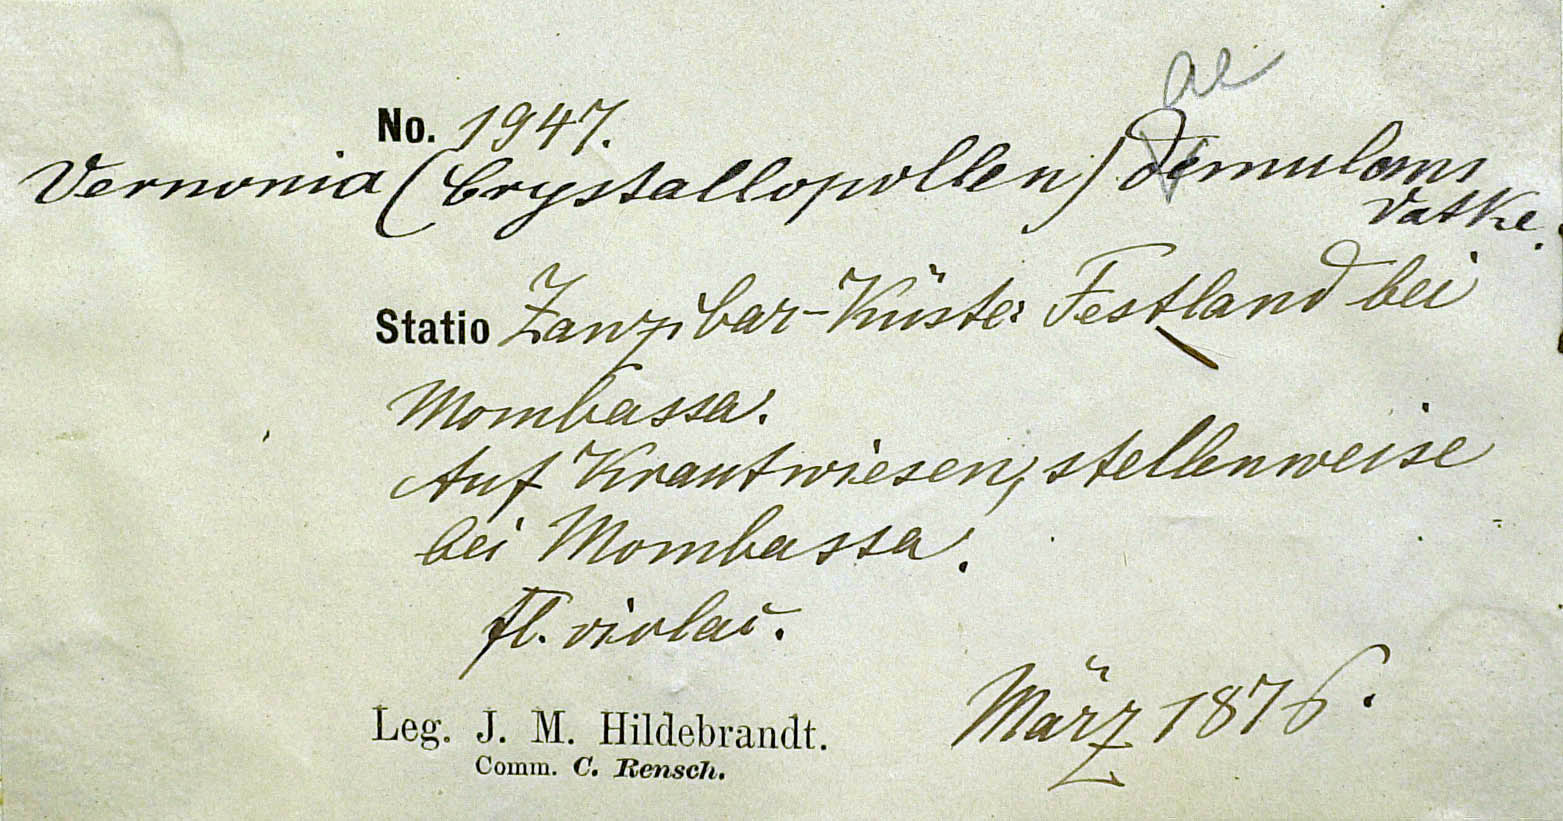 ae
No. 1947.
Vernonia (Crystallopollen) demulans
Vatke.
Statio Zanzibar-Küste: Festland bei
Mombassa.
Auf Krautwiesen, stellenweise
bei Mombassa.
fl. violac.
März 1876.
Leg. J. M. Hildebrandt.
Comm. C. Rensch.